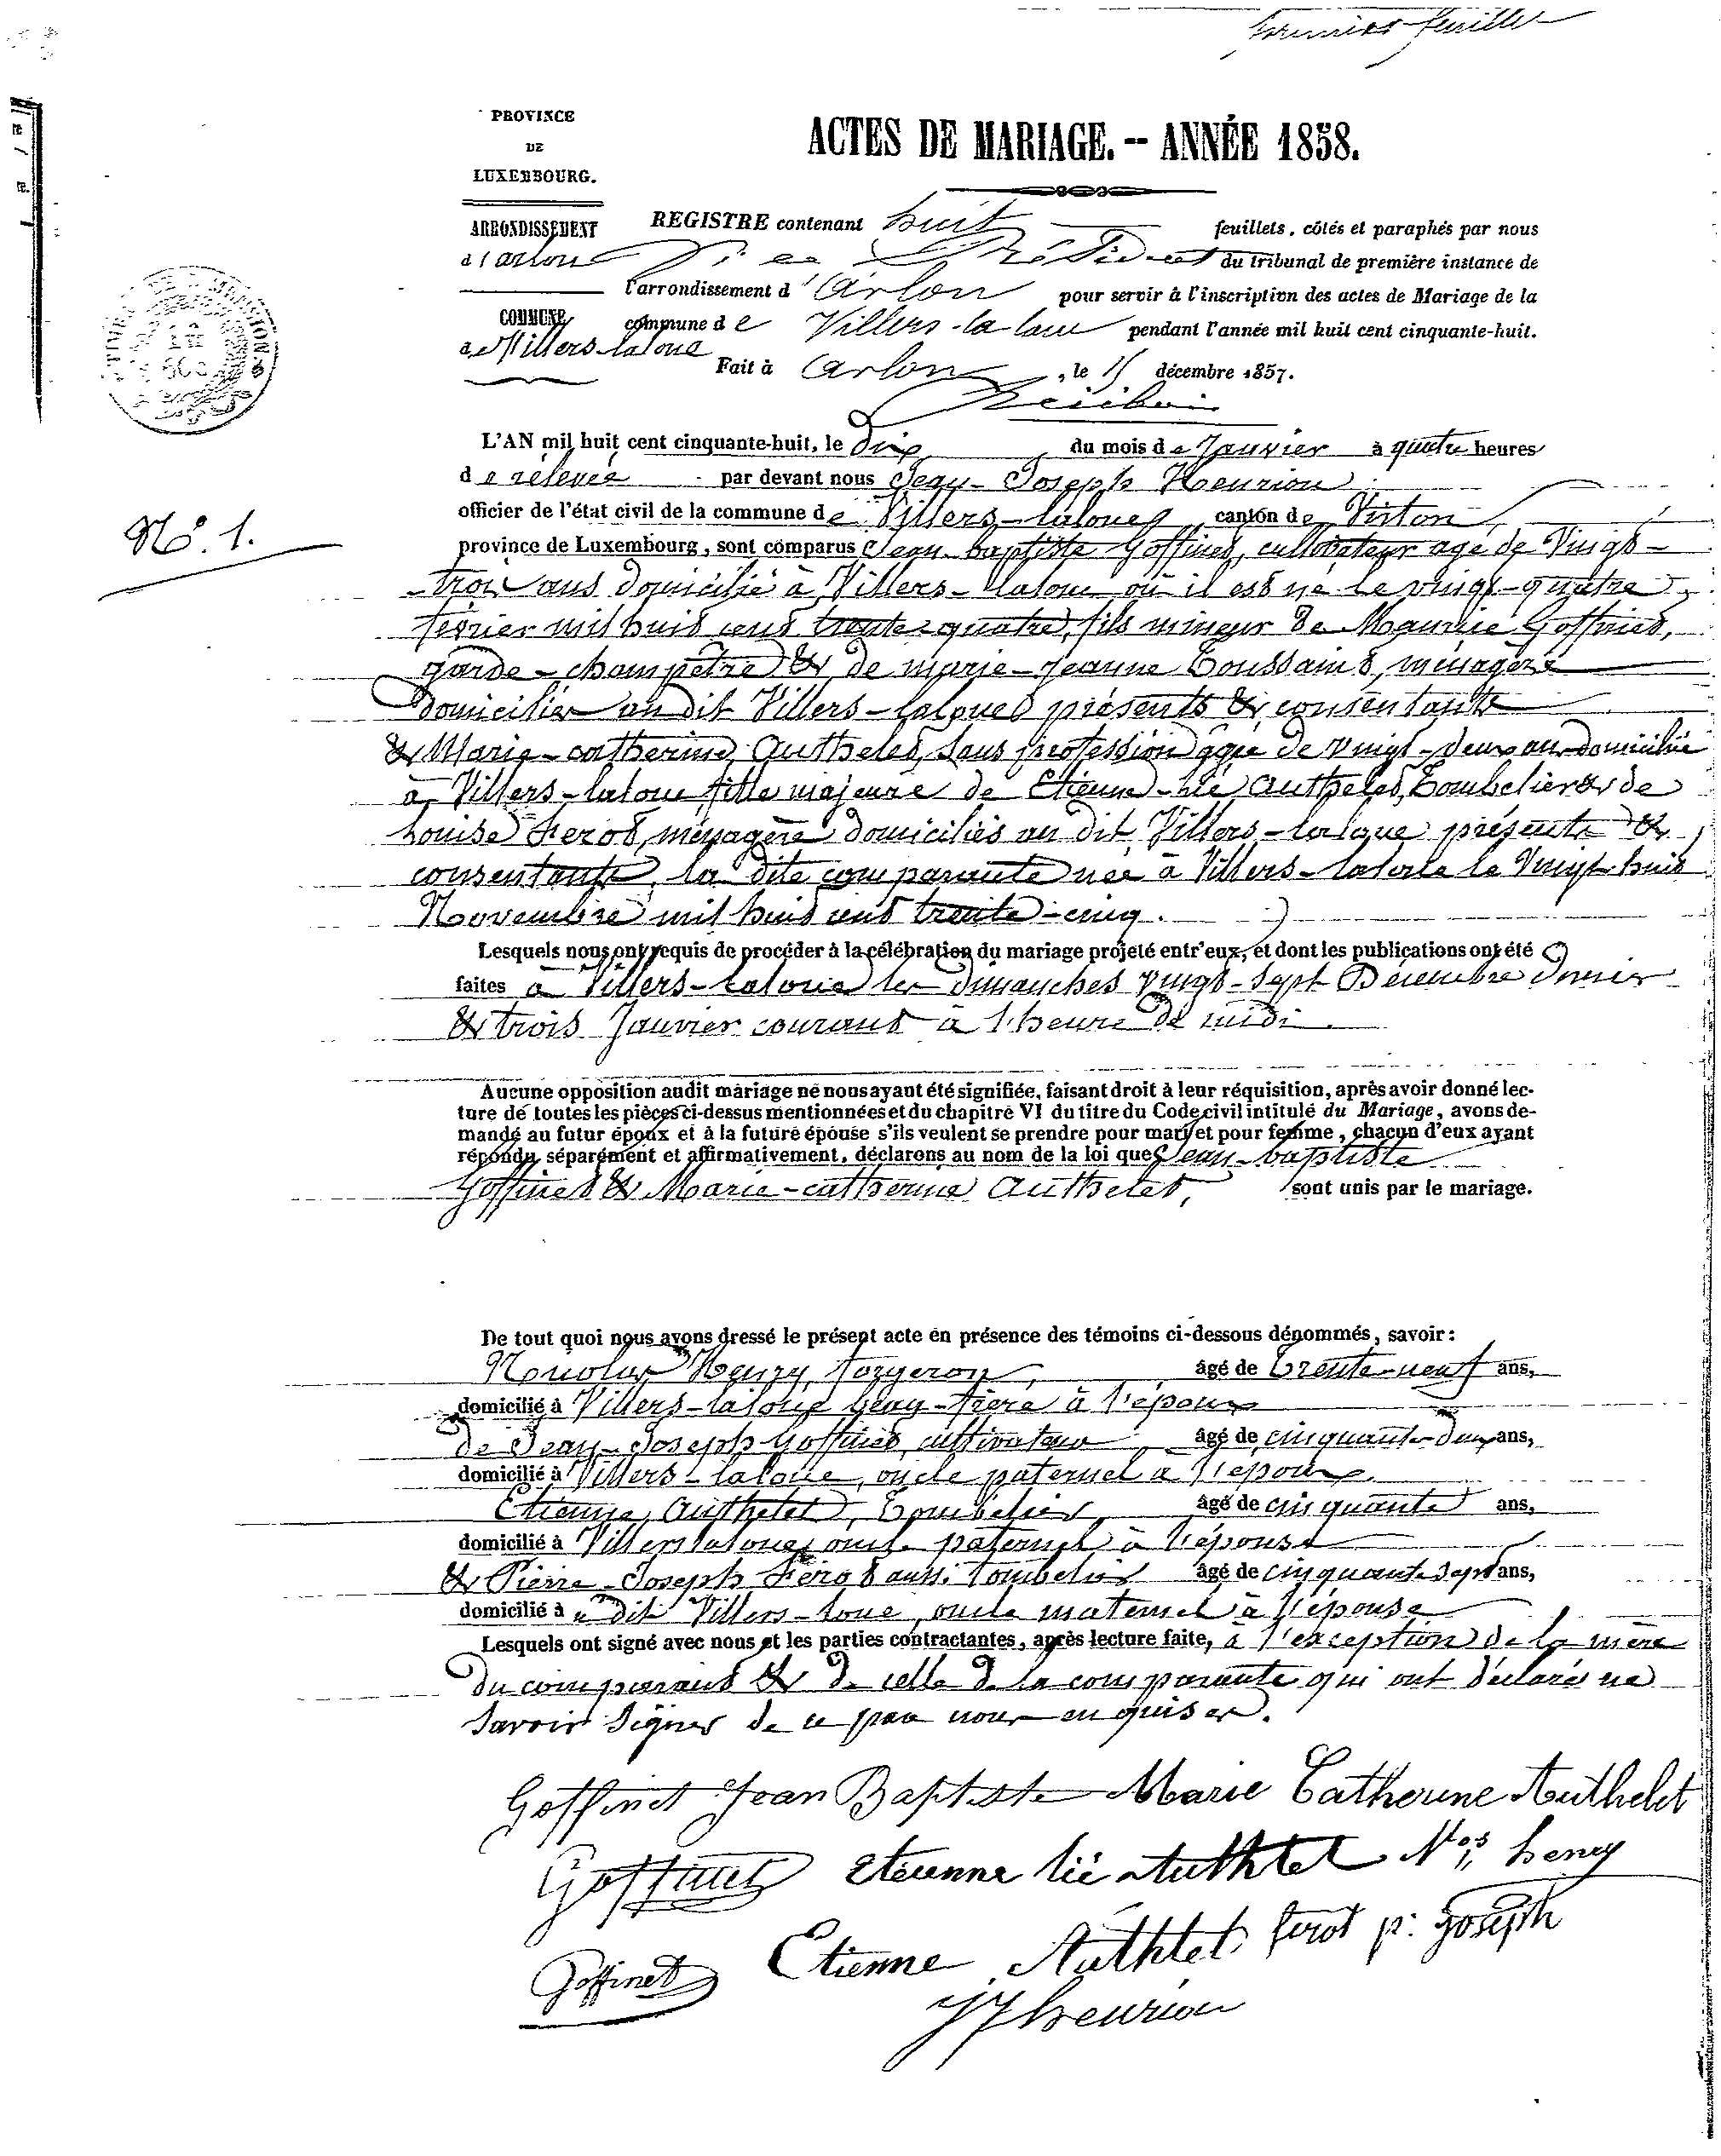 premier feuillet
PROVINCE
DE
LUXEMBOURG.
ACTES DE MARIAGE. -- ANNÉE 1858.
ARRONDISSEMENT
d'arlon
COMMUNE
de Villers-laloue
REGISTRE contenant huit feuillets, côtés et paraphés par nous
Président du tribunal de première instance de
l'arrondissement d'Arlon pour servir à l'inscription des actes de Mariage de la
commune de Villers-la-loue pendant l'année mil huit cent cinquante-huit.
Fait à Arlon, le 15 décembre 1857.
No. 1.
L'AN mil huit cent cinquante-huit, le dix du mois de Janvier à quatre heures
de relevée par devant nous Jean-Joseph Henrion
officier de l'état civil de la commune de Villers-laloue, canton de Virton,
province de Luxembourg, sont comparus Jean-baptiste Goffinet, cultivateur agé de Vingt-
trois ans domicilié à Villers-laloue où il est né le vingt-quatre
février mil huit cent trente-quatre, fils mineur de Maurice Goffinet,
garde-champêtre & de marie-Jeanne Toussaint, ménagère
domiciliés au dit Villers-laloue présents & consentants
& Marie-catherine Authelet, sans profession âgée de vingt-deux ans domiciliée
à Villers-laloue fille majeure de Etienne-lié Authelet, Tombelier & de
Louise Ferot, ménagère domiciliés au dit Villers-laloue présents &
consentants, la dite comparante née à Villers-laloue le Vingt-huit
Novembre mil huit cent trente-cinq.
Lesquels nous ont requis de procéder à la célébration du mariage projeté entr'eux, et dont les publications ont été
faites à Villers-laloue les dimanches vingt-sept Décembre dernier
& trois Janvier courant à l'heure de midi.
Aucune opposition audit mariage ne nous ayant été signifiée, faisant droit à leur réquisition, après avoir donné lec-
ture de toutes les pièces ci-dessus mentionnées et du chapitre VI du titre du Code civil intitulé du Mariage, avons de-
mandé au futur époux et à la future épouse s'ils veulent se prendre pour mari et pour femme, chacun d'eux ayant
répondu séparément et affirmativement, déclarons au nom de la loi que Jean-baptiste
Goffinet & Marie-catherine Authelet, sont unis par le mariage.
De tout quoi nous avons dressé le présent acte en présence des témoins ci-dessous dénommés, savoir:
Nicolas Henry, forgeron, âgé de trente-neuf ans,
domicilié à Villers-laloue beau-frère à l'époux
de Jean-Joseph Goffinet, cultivateur âgé de cinquante-deux ans,
domicilié à Villers-laloue, oncle paternel à l'époux.
Etienne Authelet, Tombelier âgé de cinquante ans,
domicilié à Villers laloue, oncle paternel à l'épouse
& Pierre-Joseph Férot aussi tombelier âgé de cinquante-sept ans,
domicilié à u dit Villers-loue, oncle maternel à l'épouse
Lesquels ont signé avec nous et les parties contractantes, après lecture faite, à l'exception de la mère
du comparant & de celle de la comparante qui ont déclaré ne
savoir signer de ce par nous enquises.
Goffinet Jean Baptiste Marie Catherine Authelet
Goffinet Etienne lié Authlet Nos henry
Goffinet Etienne Authlet ferot p: Joseph
JJ henrion